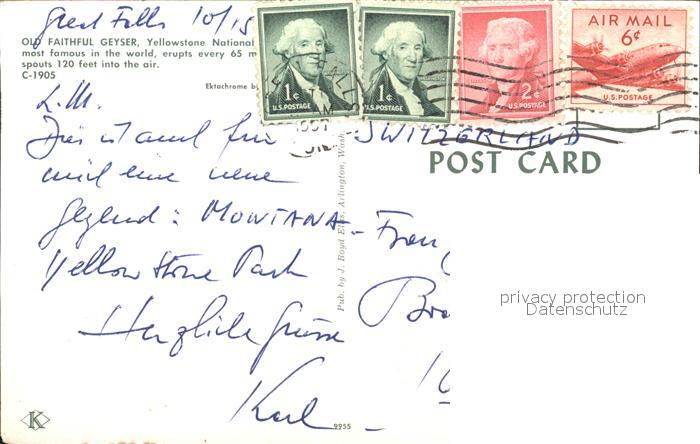 Great Falls 10/15
OLD FAITHFUL GEYSER, Yellowstone National
most famous in the world, erupts every 65 m
spouts 120 feet into the air.
C-1905
Ektachrome by
1¢ U.S. POSTAGE
1¢ U.S. POSTAGE
2¢ U.S. POSTAGE
AIR MAIL
6¢
U.S. POSTAGE
L.M.
Dies ist auch für
mich eine neue
Gegend: MONTANA -
Yellowstone Park
Herzliche Grüsse
Karl
SWITZERLAND
POST CARD
Pub. by J. Boyd Ellis, Arlington, Wash.
privacy protection
Datenschutz
K
9955